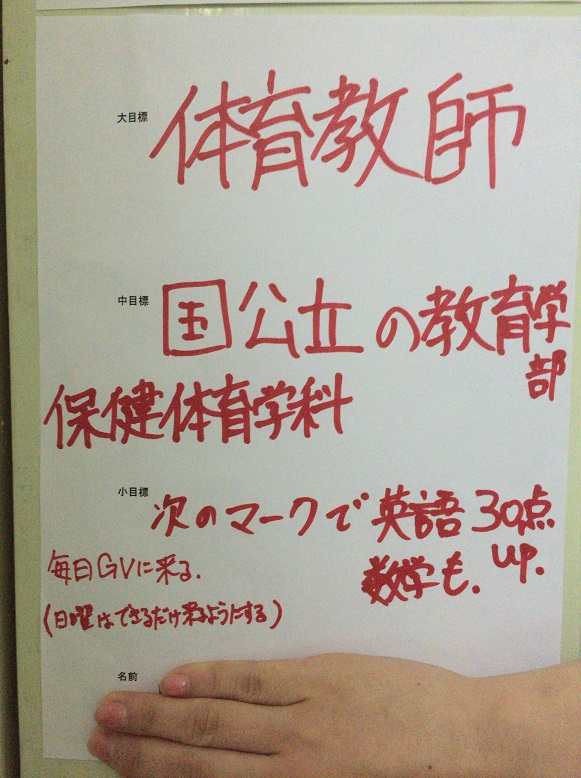 大目標 体育教師
中目標 国公立の教育学
部
保健体育学科
小目標 次のマークで英語30点
up.
数学も.
毎日GVに来る.
(日曜はできるだけ来るようにする)
名前